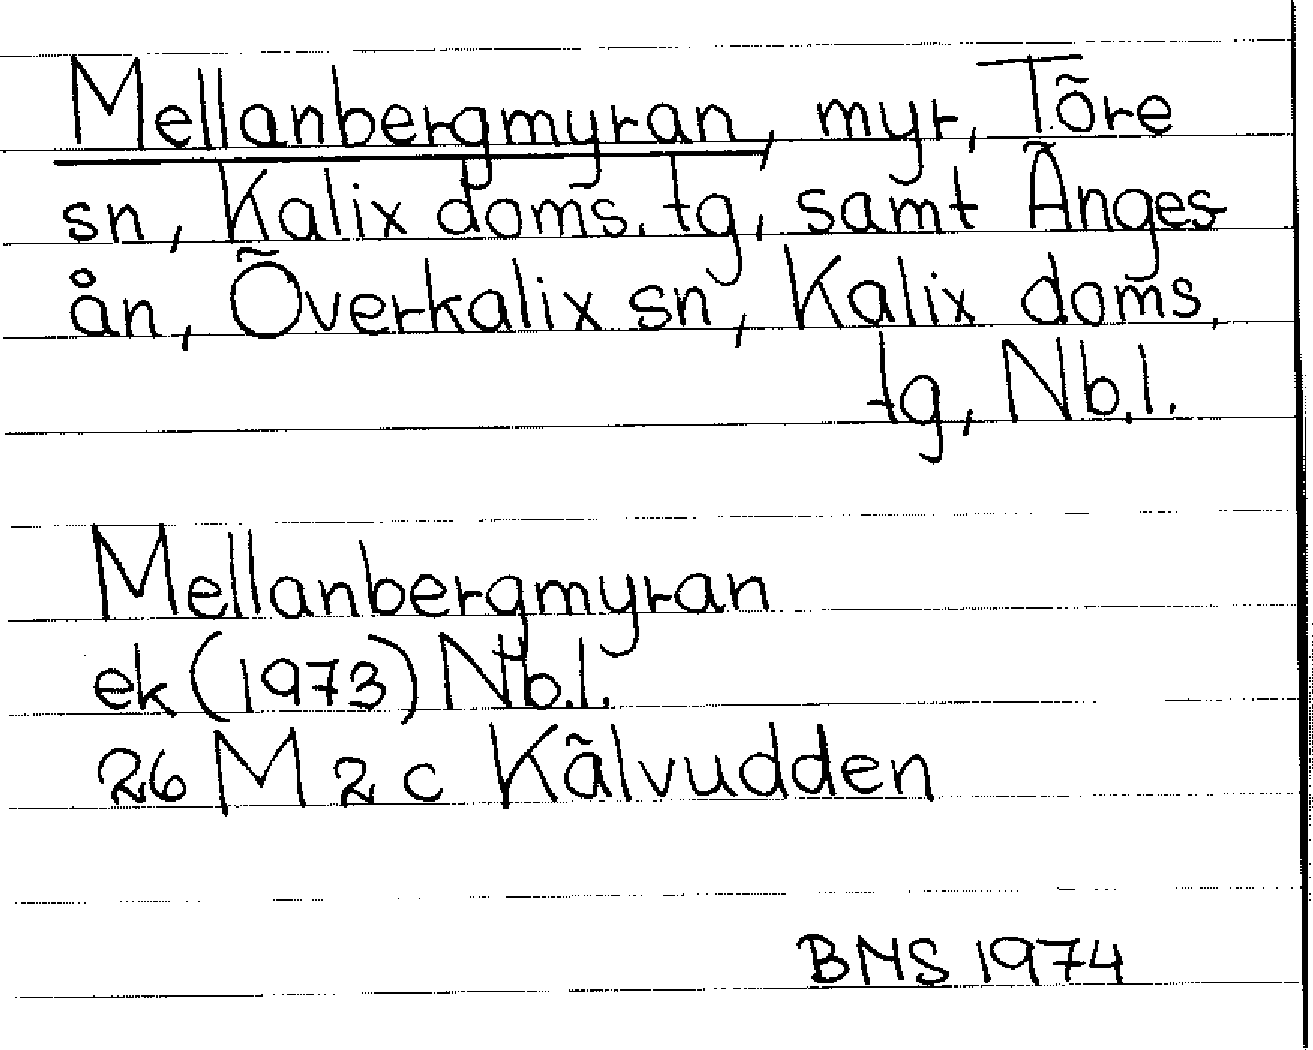 Mellanbergmyran, myr, Töre
sn, Kalix doms. tg, samt Änges-
ån, Överkalix sn, Kalix doms.
tg, Nb.l.
Mellanbergmyran
ek (1973) Nb.l.
26 M 2 c Kälvudden
BMS 1974